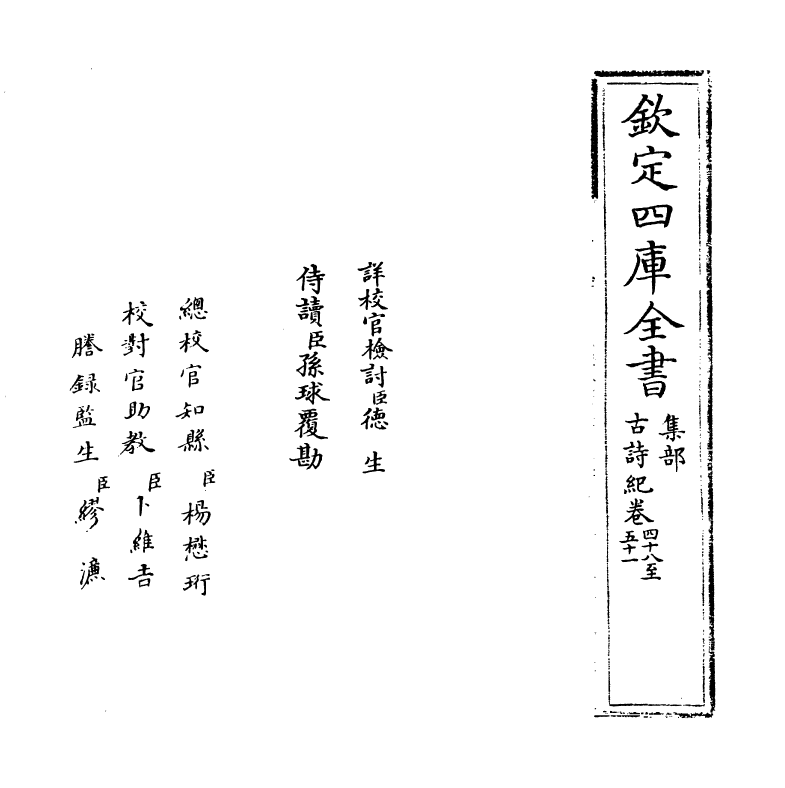 欽定四庫全書
集部
古詩紀卷四十八至五十一
詳校官檢討臣德生
侍讀臣孫球覆勘
總校官知縣臣楊懋珩
校對官助教臣卜維吉
謄録監生臣繆濂